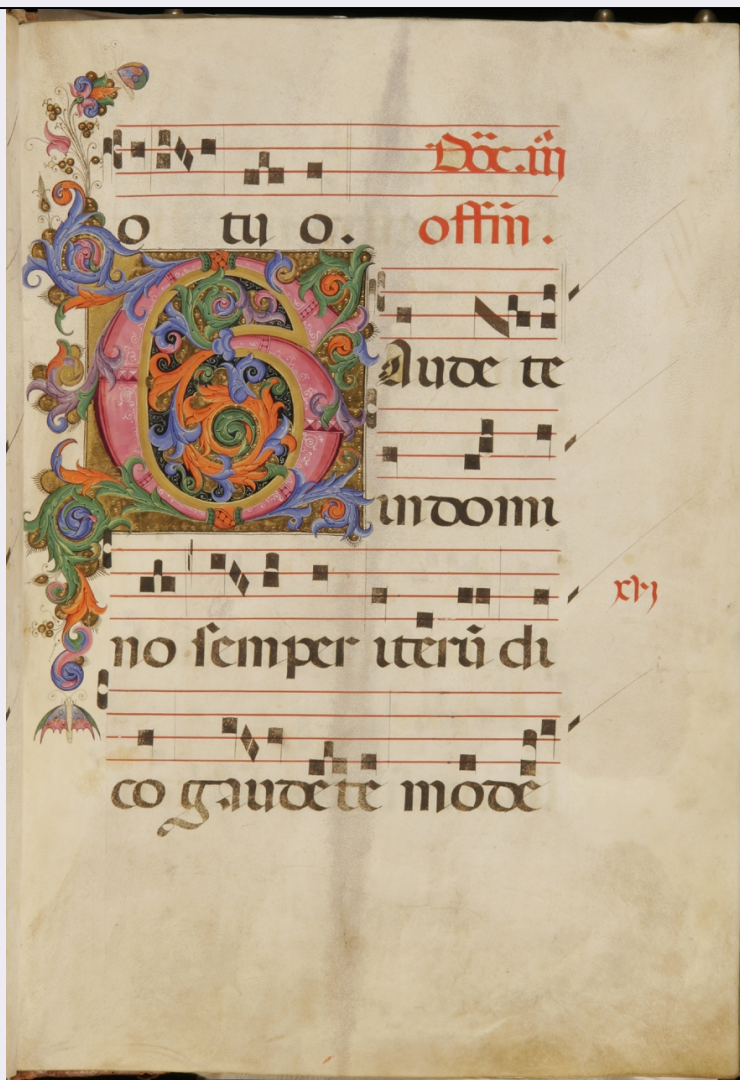 Dōc. iij
o tu o. offm̄.
Gaude te
in domi
no semper iterū di
xvj
co gaudete mode